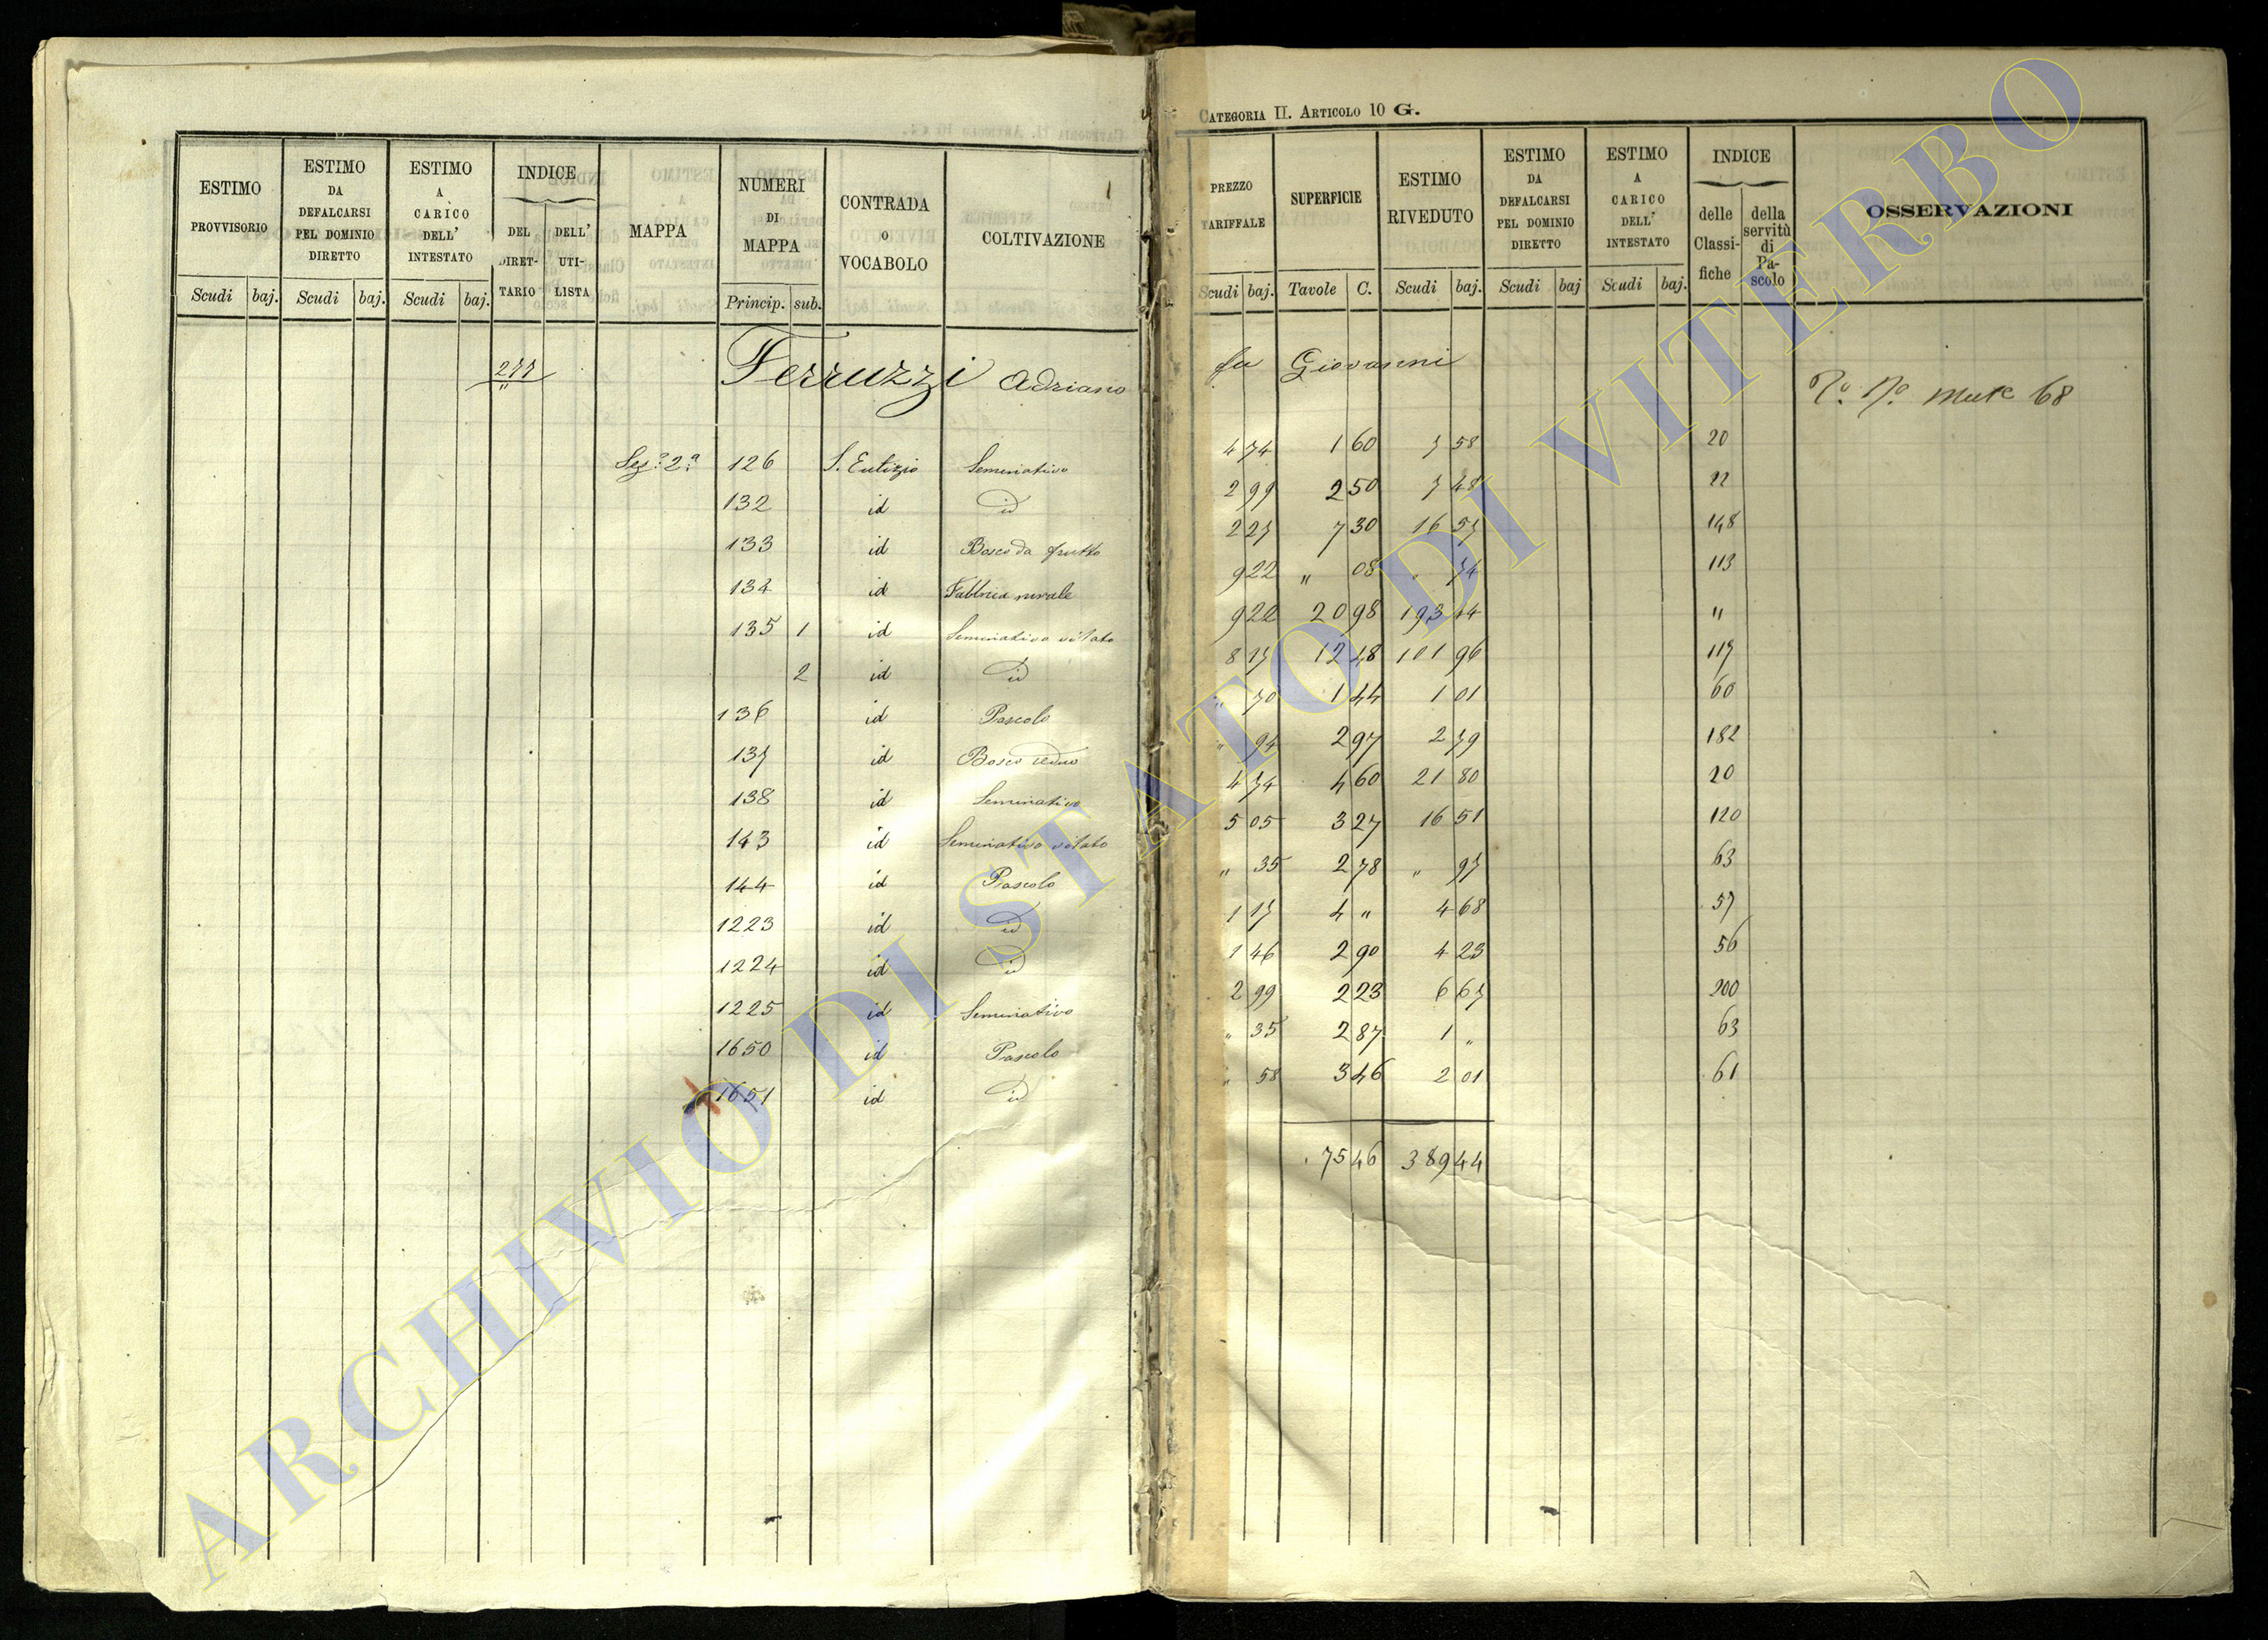 CATEGORIA II. ARTICOLO 10 G.
ESTIMO PROVVISORIO | ESTIMO DA DEFALCARSI PEL DOMINIO DIRETTO | ESTIMO A CARICO DELL' INTESTATO | INDICE DEL DIRET-TARIO | DELL' UTI-LISTA | MAPPA | NUMERI DI MAPPA | CONTRADA O VOCABOLO | COLTIVAZIONE | PREZZO TARIFFALE | SUPERFICIE | ESTIMO RIVEDUTO | ESTIMO DA DEFALCARSI PEL DOMINIO DIRETTO | ESTIMO A CARICO DELL' INTESTATO | INDICE delle Classi-fiche | della servitù di Pa-scolo | OSSERVAZIONI
Scudi | baj. | Scudi | baj. | Scudi | baj. | Princip. | sub. | Scudi | baj. | Tavole | C. | Scudi | baj. | Scudi | baj | Scudi | baj.
277 Ferruzzi Adriano fu Giovanni
Mut 68
Sez.e 2.a 126 S. Eutizio Seminativo 4 74 1 60 7 58 20
132 id id 2 99 2 50 7 48 22
133 id Bosco da frutto 2 27 7 30 16 57 148
134 id Fabbrica rurale 9 22 " 08 " 74 113
135 1 id Seminativo vitato 9 22 20 98 193 44 "
2 id id 8 17 12 48 101 96 117
136 id Pascolo " 70 1 44 1 01 60
137 id Bosco ceduo " 94 2 97 2 79 182
138 id Seminativo 4 74 4 60 21 80 20
143 id Seminativo vitato 5 05 3 27 16 51 120
144 id Pascolo " 35 2 78 " 97 63
1223 id id 1 17 4 " 4 68 57
1224 id id 1 46 2 90 4 23 56
1225 id Seminativo 2 99 2 23 6 67 200
1650 id Pascolo " 35 2 87 1 " 63
1651 id id " 58 3 46 2 01 61
75 46 389 44
ARCHIVIO DI STATO DI VITERBO